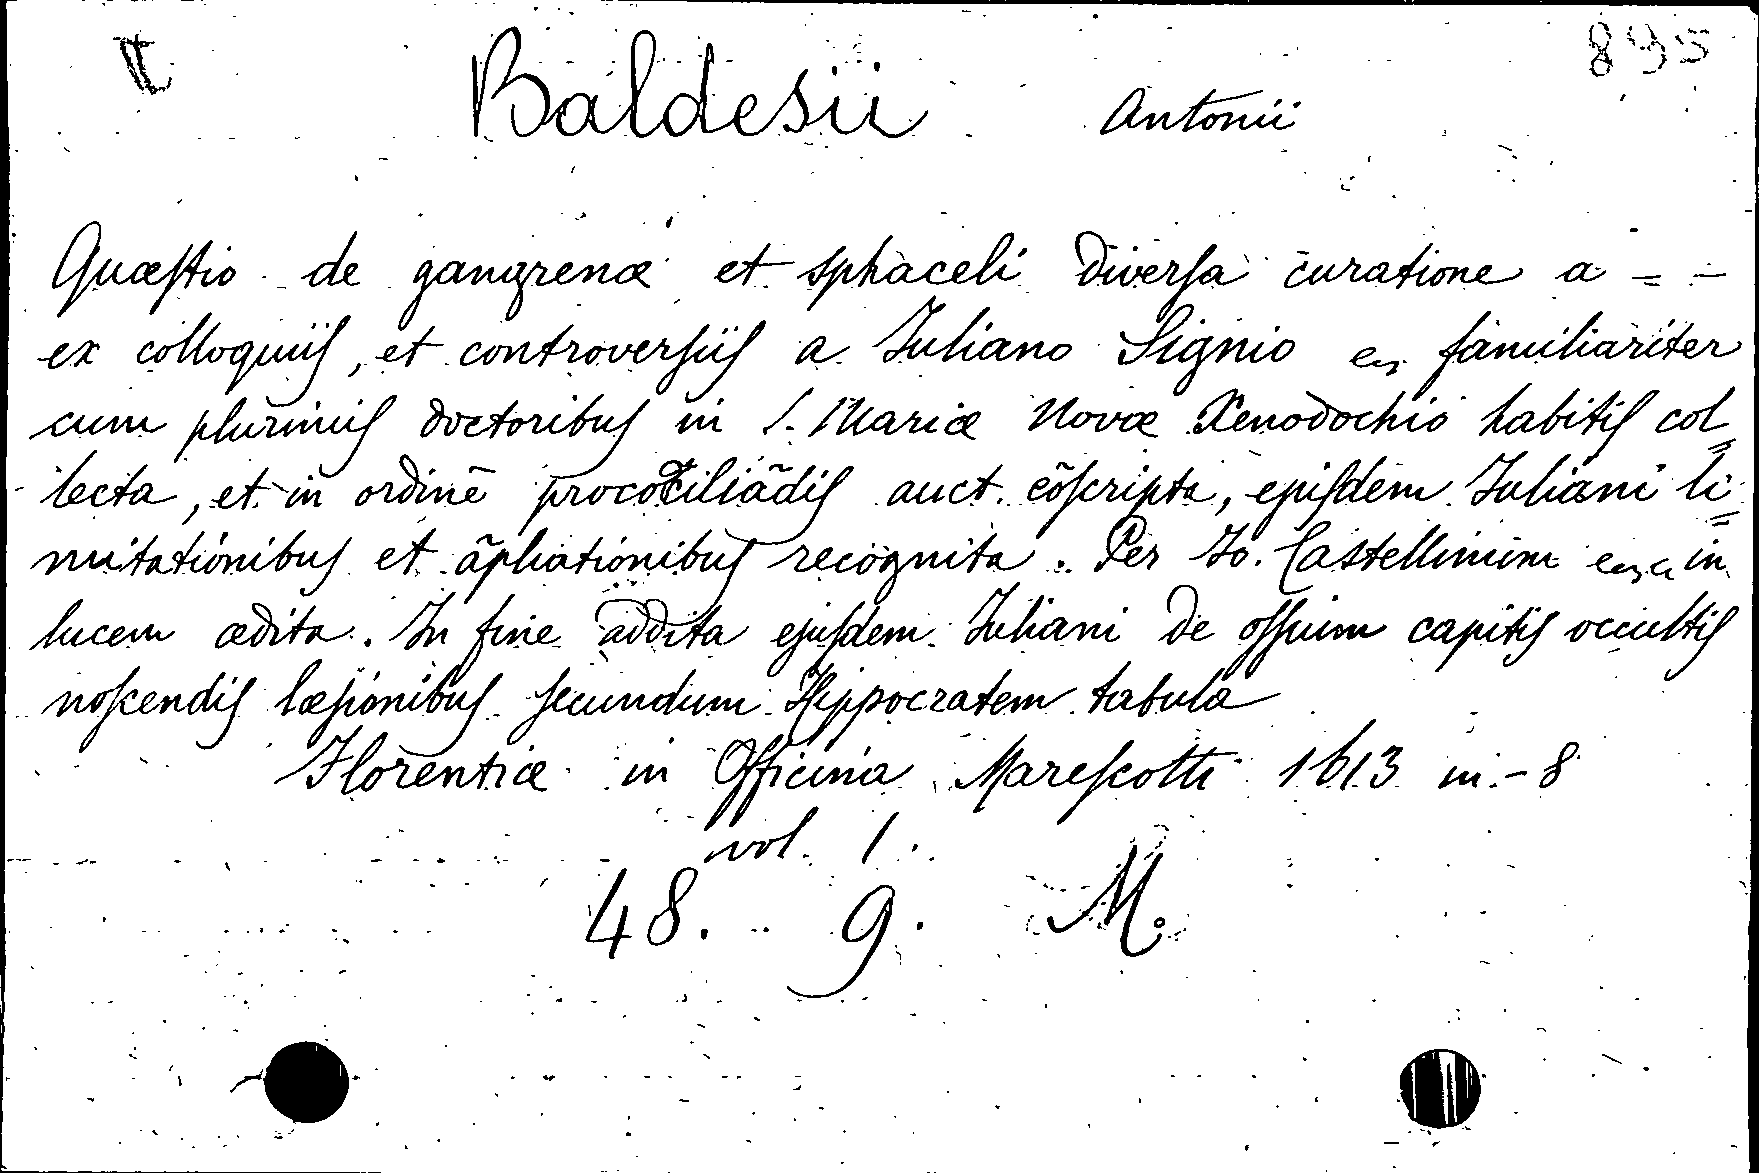 895
Baldesii Antonii
Quæſtio de gangrenæ et sphaceli diverſa curatione a = =
ex colloquiiſ, et controverſiiſ a Iuliano Signio familiariter
cum plurimiſ doctoribuſ in S. Mariæ Novæ Xenodochio habitiſ col=
lecta, et in ordinē procociliãdiſ auct. cõſcripta, ejuſdem Iuliani li=
mitationibuſ et ãpliationibuſ recognita. Per Io. Castellinum in
lucem ædita. In fine addita ejuſdem Iuliani de oſſium capitiſ occultiſ
noſcendiſ læſionibuſ ſecundum Hippocratem tabula
Florentiæ in Officina Mareſcotti 1613 in-8
vol. 1.
48. 9. M.